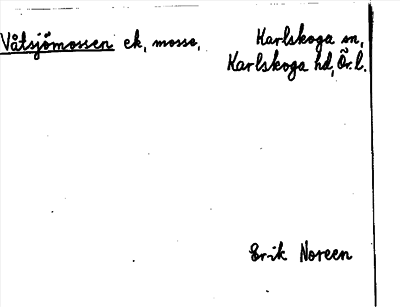 Våtsjömossen ek, mosse, Karlskoga sn,
Karlskoga hd, Ör. l.
Erik Noreen